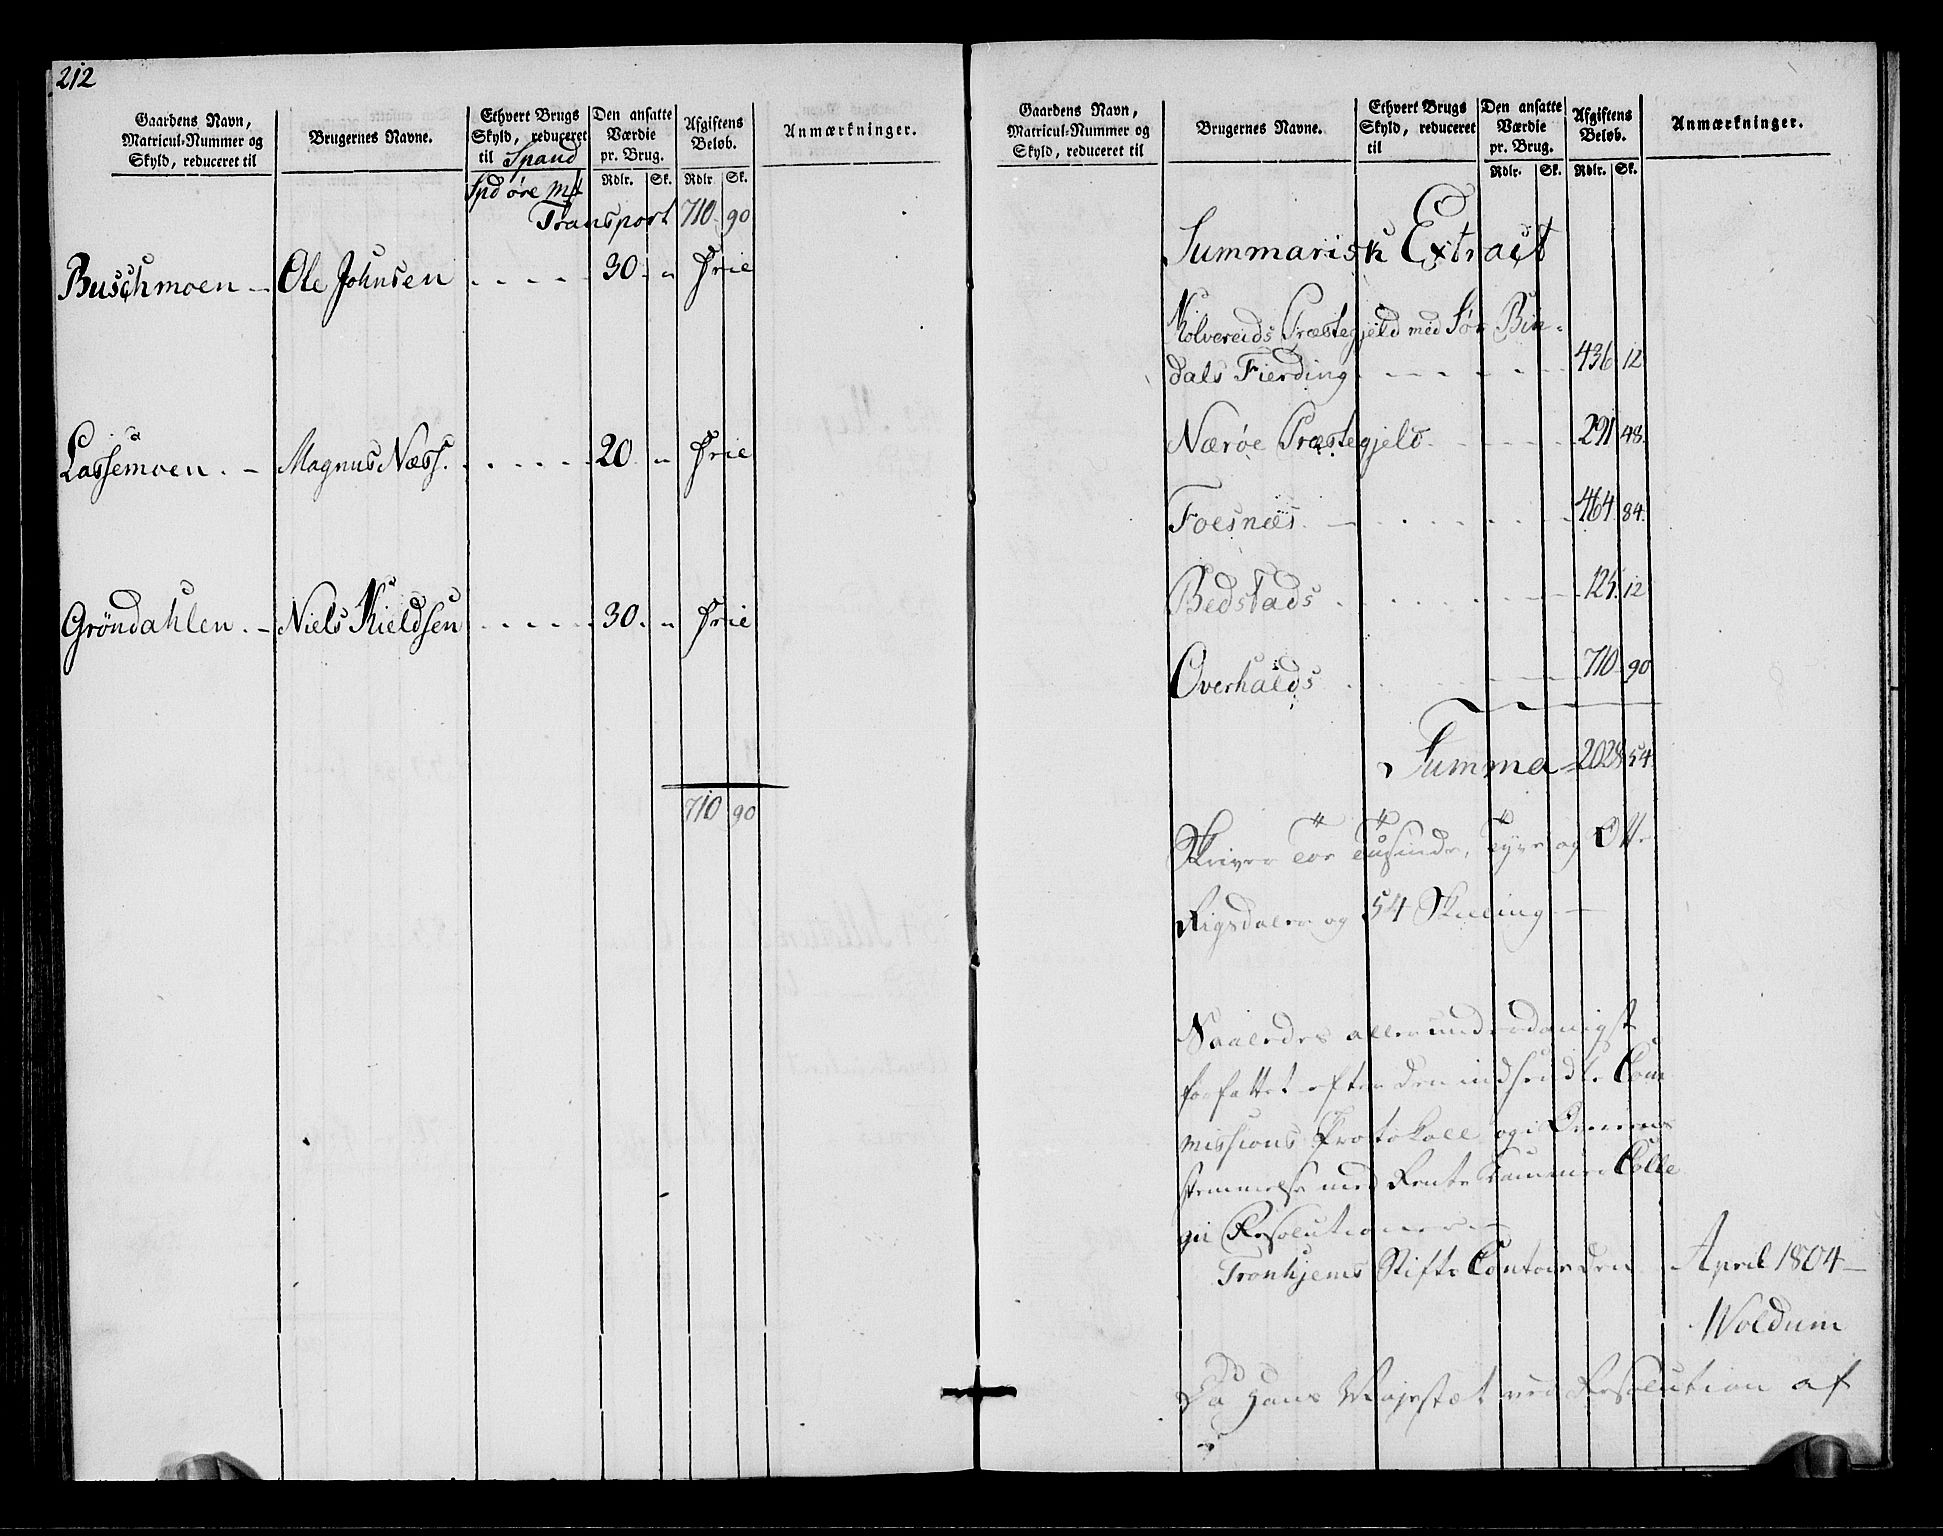 212
Gaardens Navn, Matricul-Nummer og Skyld, reduceret til
Brugernes Navne.
Ethvert Brugs Skyld, reduceret til Spand
Den ansatte Værdie pr. Brug.
Afgiftens Beløb.
Anmærkninger.
Spd øre Mk Rdlr. Sk. Rdlr. Sk.
Transport 710 90
Buschmoen - Ole Johnsen . . . . . 30. " Frie
Lassemoen. - Magnus Næss. . . . . . 20. " Frie
Gröndahlen. - Niels Kieldsen . . . . . 30. " Frie
710 90
Gaardens Navn, Matricul-Nummer og Skyld, reduceret til
Brugernes Navne.
Ethvert Brugs Skyld, reduceret til
Den ansatte Værdie pr. Brug.
Afgiftens Beløb.
Anmærkninger.
Rdlr. Sk. Rdlr. Sk.
Summarisk Extract
Kolvereids Præstegjeld med Sør Bin-
dals Fierding . . . . . 436 12
Nærøe Præstegjeld . . . . . 291 48.
Foesnæs . . . . . 464. 84.
Bedstads . . . . . 125. 12
Overhalds . . . . . 710. 90
Summa = 2028 54
Skriver Toe Tusinde, Tyve og Otte
Rigsdaler og 54 Skilling
Saaledes allerunderdanigst
forfattet efter den indsendte Com
missions Protokoll og i Overeens
stemmelse med Rente Kammer Colle
gii Resolutioner
Tronhjems Stifts Contoir den April 1804
Woldum
Da Hans Majestæt ved Resolution af